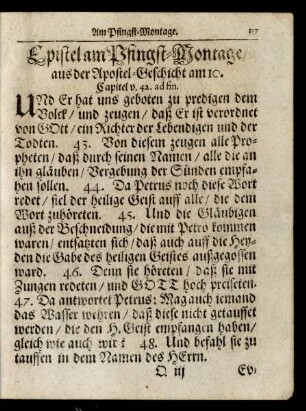 Am Pfingst-Montage.
Epistel am Pfingst-Montage/
aus der Apostel-Geschicht am 10.
Capitel v. 42. ad fin.
UNd Er hat uns geboten zu predigen dem
Volck/ und zeugen/ daß Er ist verordnet
von GOtt/ ein Richter der Lebendigen und der
Todten. 43. Von diesem zeugen alle Pro-
pheten/ daß durch seinen Namen/ alle die an
ihn gläuben/ Vergebung der Sünden empfa-
hen sollen. 44. Da Petrus noch diese Wort
redet/ fiel der heilige Geist auff alle/ die dem
Wort zuhöreten. 45. Und die Gläubigen
auß der Beschneidung/ die mit Petro kommen
waren/ entsatzten sich/ daß auch auff die Hey-
den die Gabe des heiligen Geistes außgegossen
ward. 46. Denn sie höreten/ daß sie mit
Zungen redeten/ und GOTT hoch preiseten.
47. Da antwortet Petrus: Mag auch iemand
das Wasser wehren/ daß diese nicht getauffet
werden/ die den H. Geist empfangen haben/
gleich wie auch wir? 48. Und befahl sie zu
tauffen in dem Namen des HErrn.
Q iij Ev/